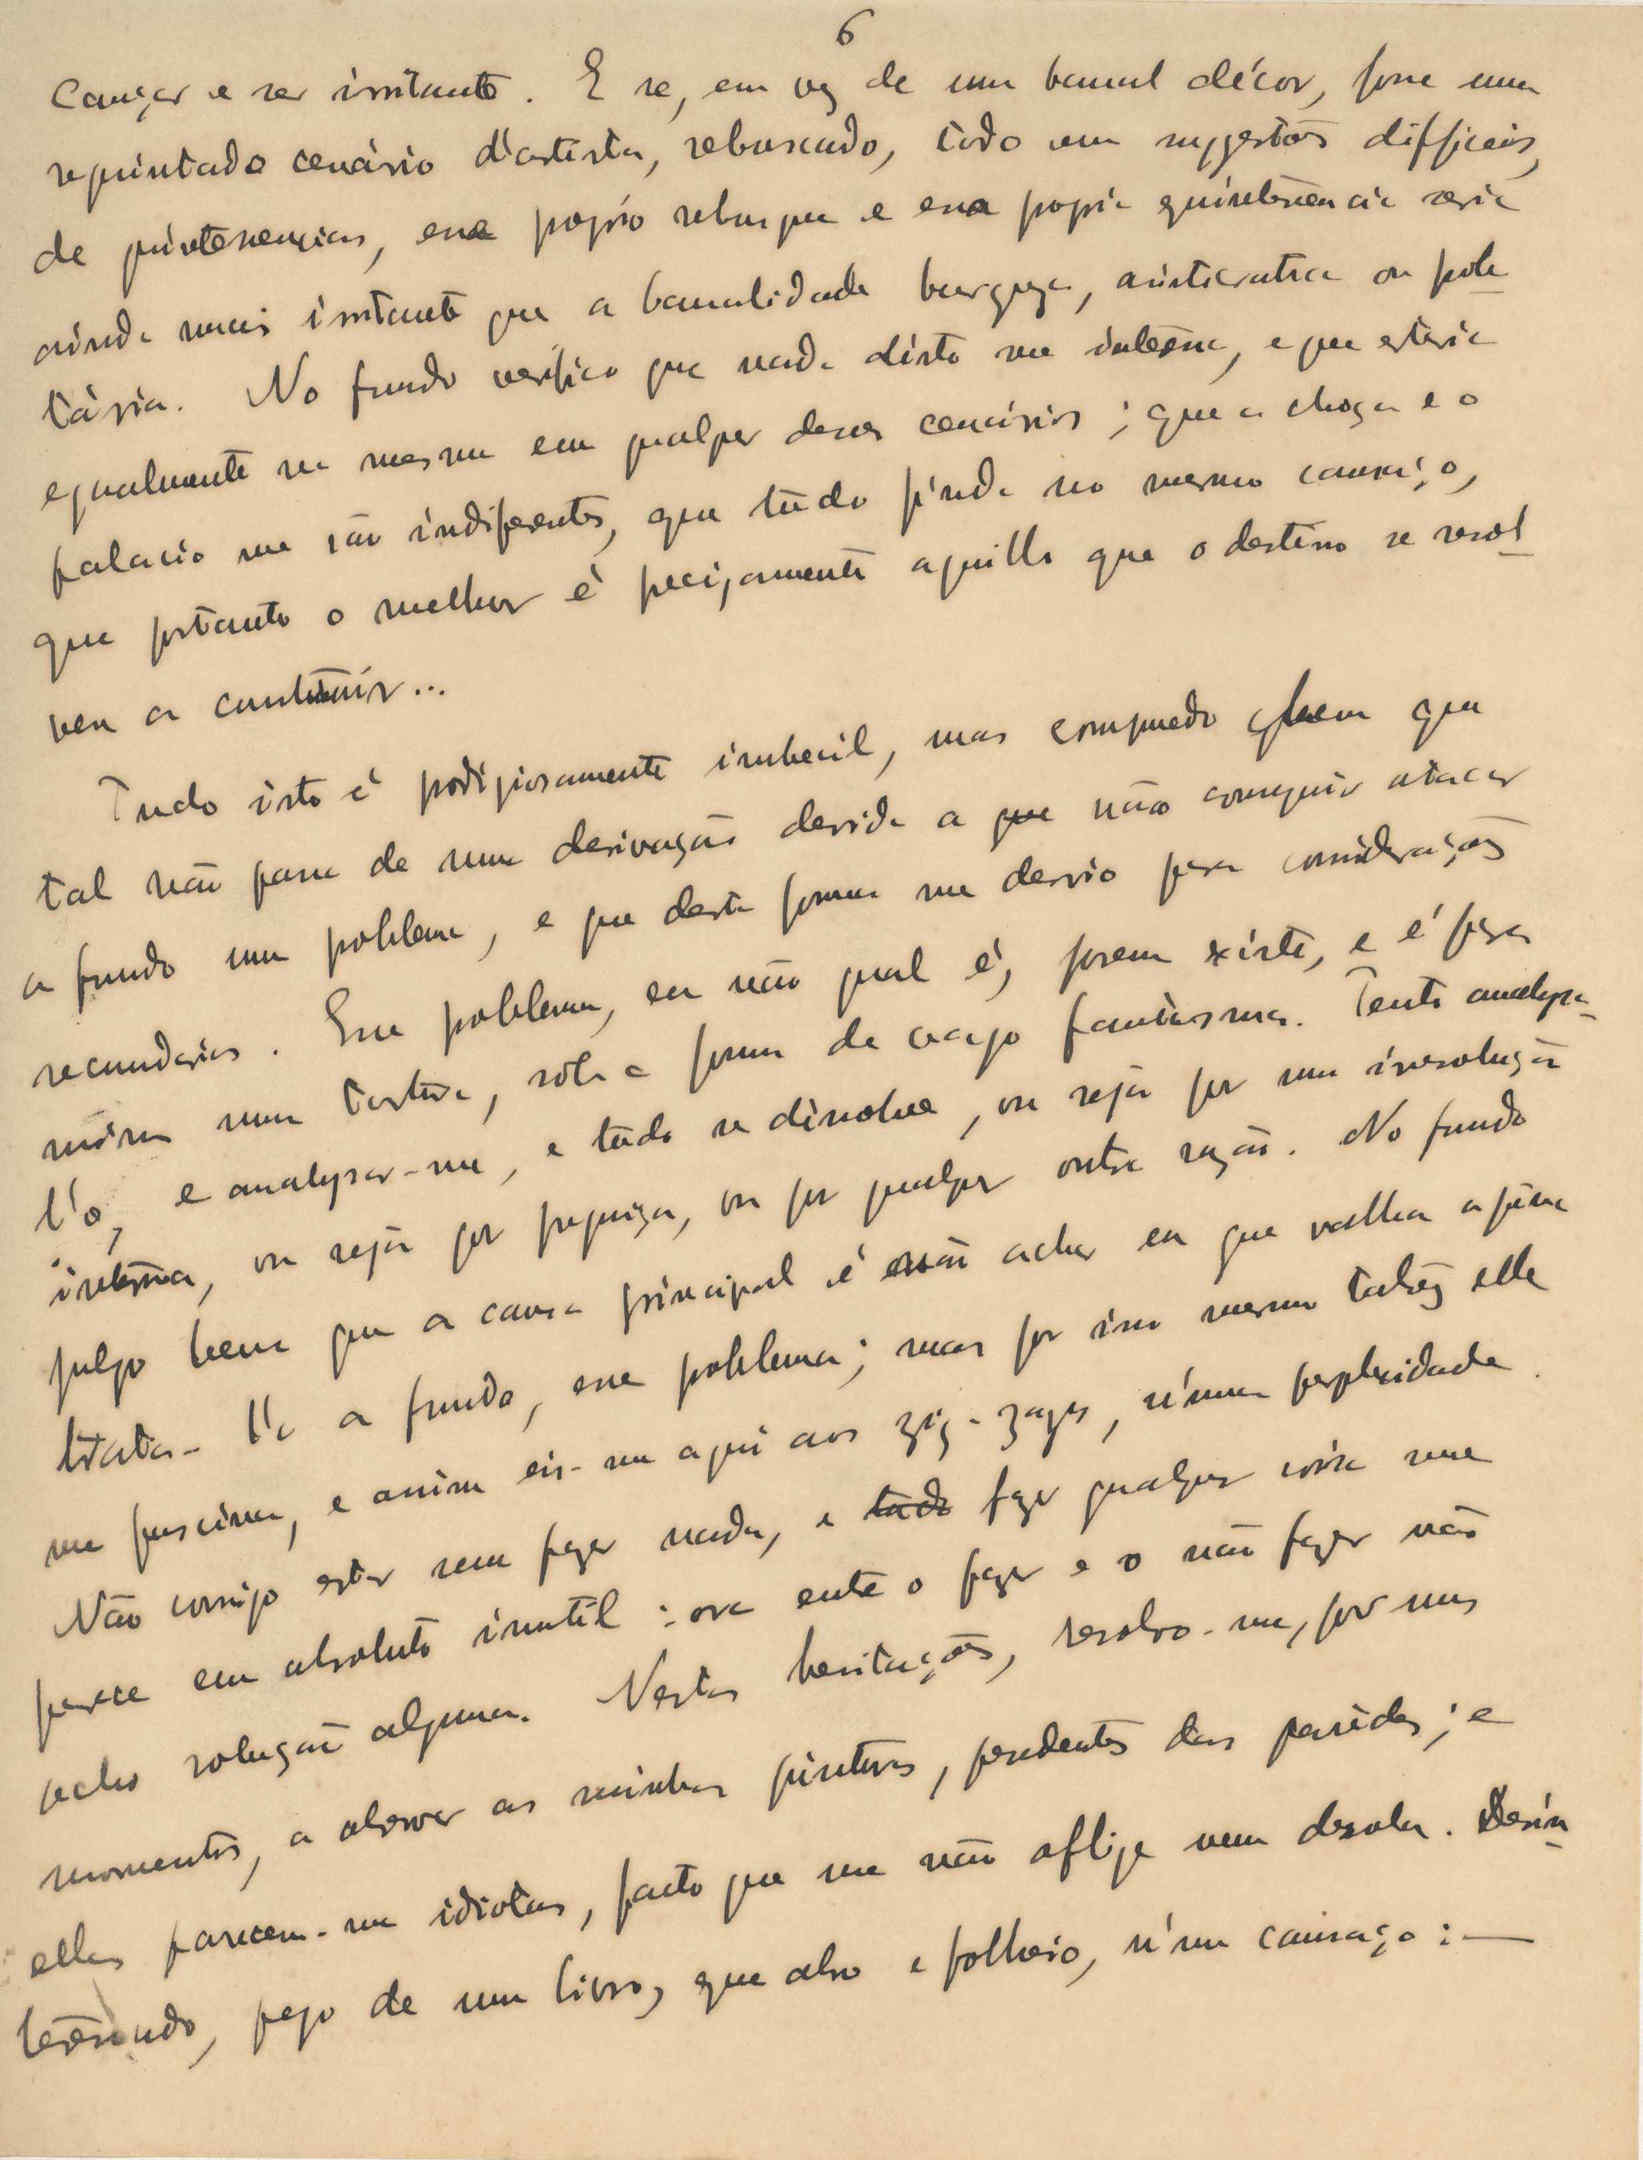 6
cançar e ser irritante. E se, em vez de um banal décor, fosse um
requintado cenário d'artista, rebuscado, todo em suggestões difficeis,
de quintessencias, esse proprio rebusque e essa propria quintessencia seria
ainda mais irritante que a banalidade burgueza, aristocratica ou prole
tária. No fundo verifico que nada disto me interessa, e que estaria
egualmente na mesma em qualquer desses cenários; que a choça e o
palacio me são indiferentes, que tudo finda no mesmo cansaço,
que portanto o melhor é precisamente aquillo que o destino se resol
veu a construir...
Tudo isto é prodigiosamente imbecil, mas comprehendo bem que
tal não passa de uma derivação devida a que não consegui atacar
a fundo um problema, e que desta forma me desvio para considerações
secundarias. Esse problema, eu não qual é, porem existe, e é para
mim uma tortura, sob a forma de vago fantasma. Tento analysa-
l'o, e analysar-me, e tudo se dissolve, ou seja por uma irresolução
intensa, ou seja por preguiça, ou por qualquer outra razão. No fundo
julgo bem que a causa principal é não achar eu que valha a pena
tratar-l'o a fundo, esse problema; mas por isso mesmo talvez elle
me fascina, e assim eis-me aqui aos zig-zags, n'uma perplexidade.
Não consigo estar sem fazer nada, e tudo fazer qualquer coisa me
parece em absoluto inutil: ora entre o fazer e o não fazer não
acho solução alguma. Nestas hesitações, resolvo-me, por uns
momentos, a observar as minhas pinturas, pendentes das paredes; e
ellas parecem-me idiotas, facto que me não aflige nem desola. Desin
teressando, pego de um livro, que abro e folheio, n'um cansaço:—